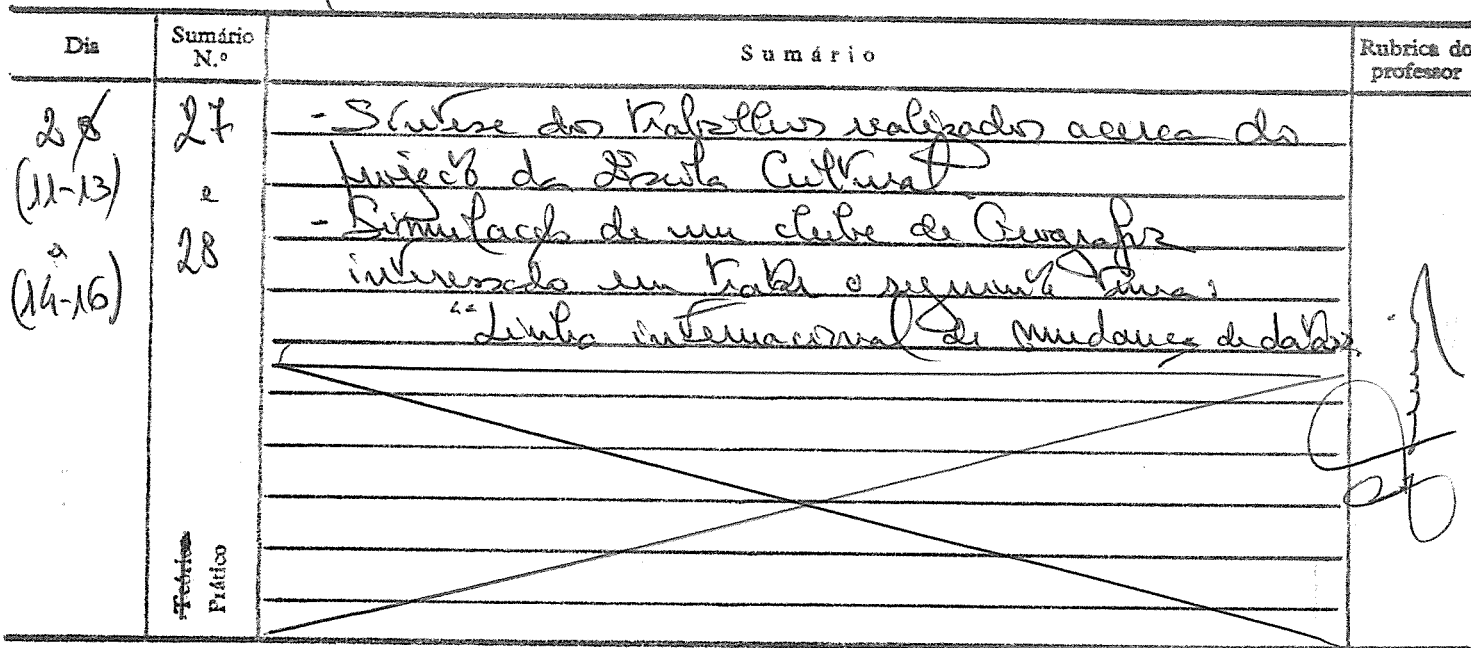 Dia
Sumário N.º
Sumário
Rubrica do professor
(11-13)
e
(14-16)
27
e
28
- Síntese dos trabalhos realizados acerca do
projecto da Escola Cultural
- Simulação de um clube de Geografia
interessado em tratar o seguinte tema:
"Linha internacional de mudança de datas
Teórico
Prático